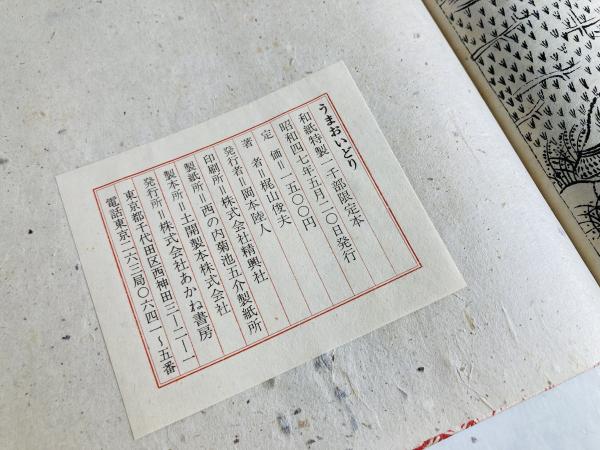 うまおいどり
和紙特製一千部限定本
昭和四七年五月二〇日発行
定　価＝一五〇〇円
著　者＝梶山俊夫
発行者＝岡本陸人
印刷所＝株式会社精興社
製紙所＝西の内菊池五介製紙所
製本所＝土開製本株式会社
発行所＝株式会社あかね書房
東京都千代田区西神田三ー二ー一
電話東京二六三局〇六四一〜五番